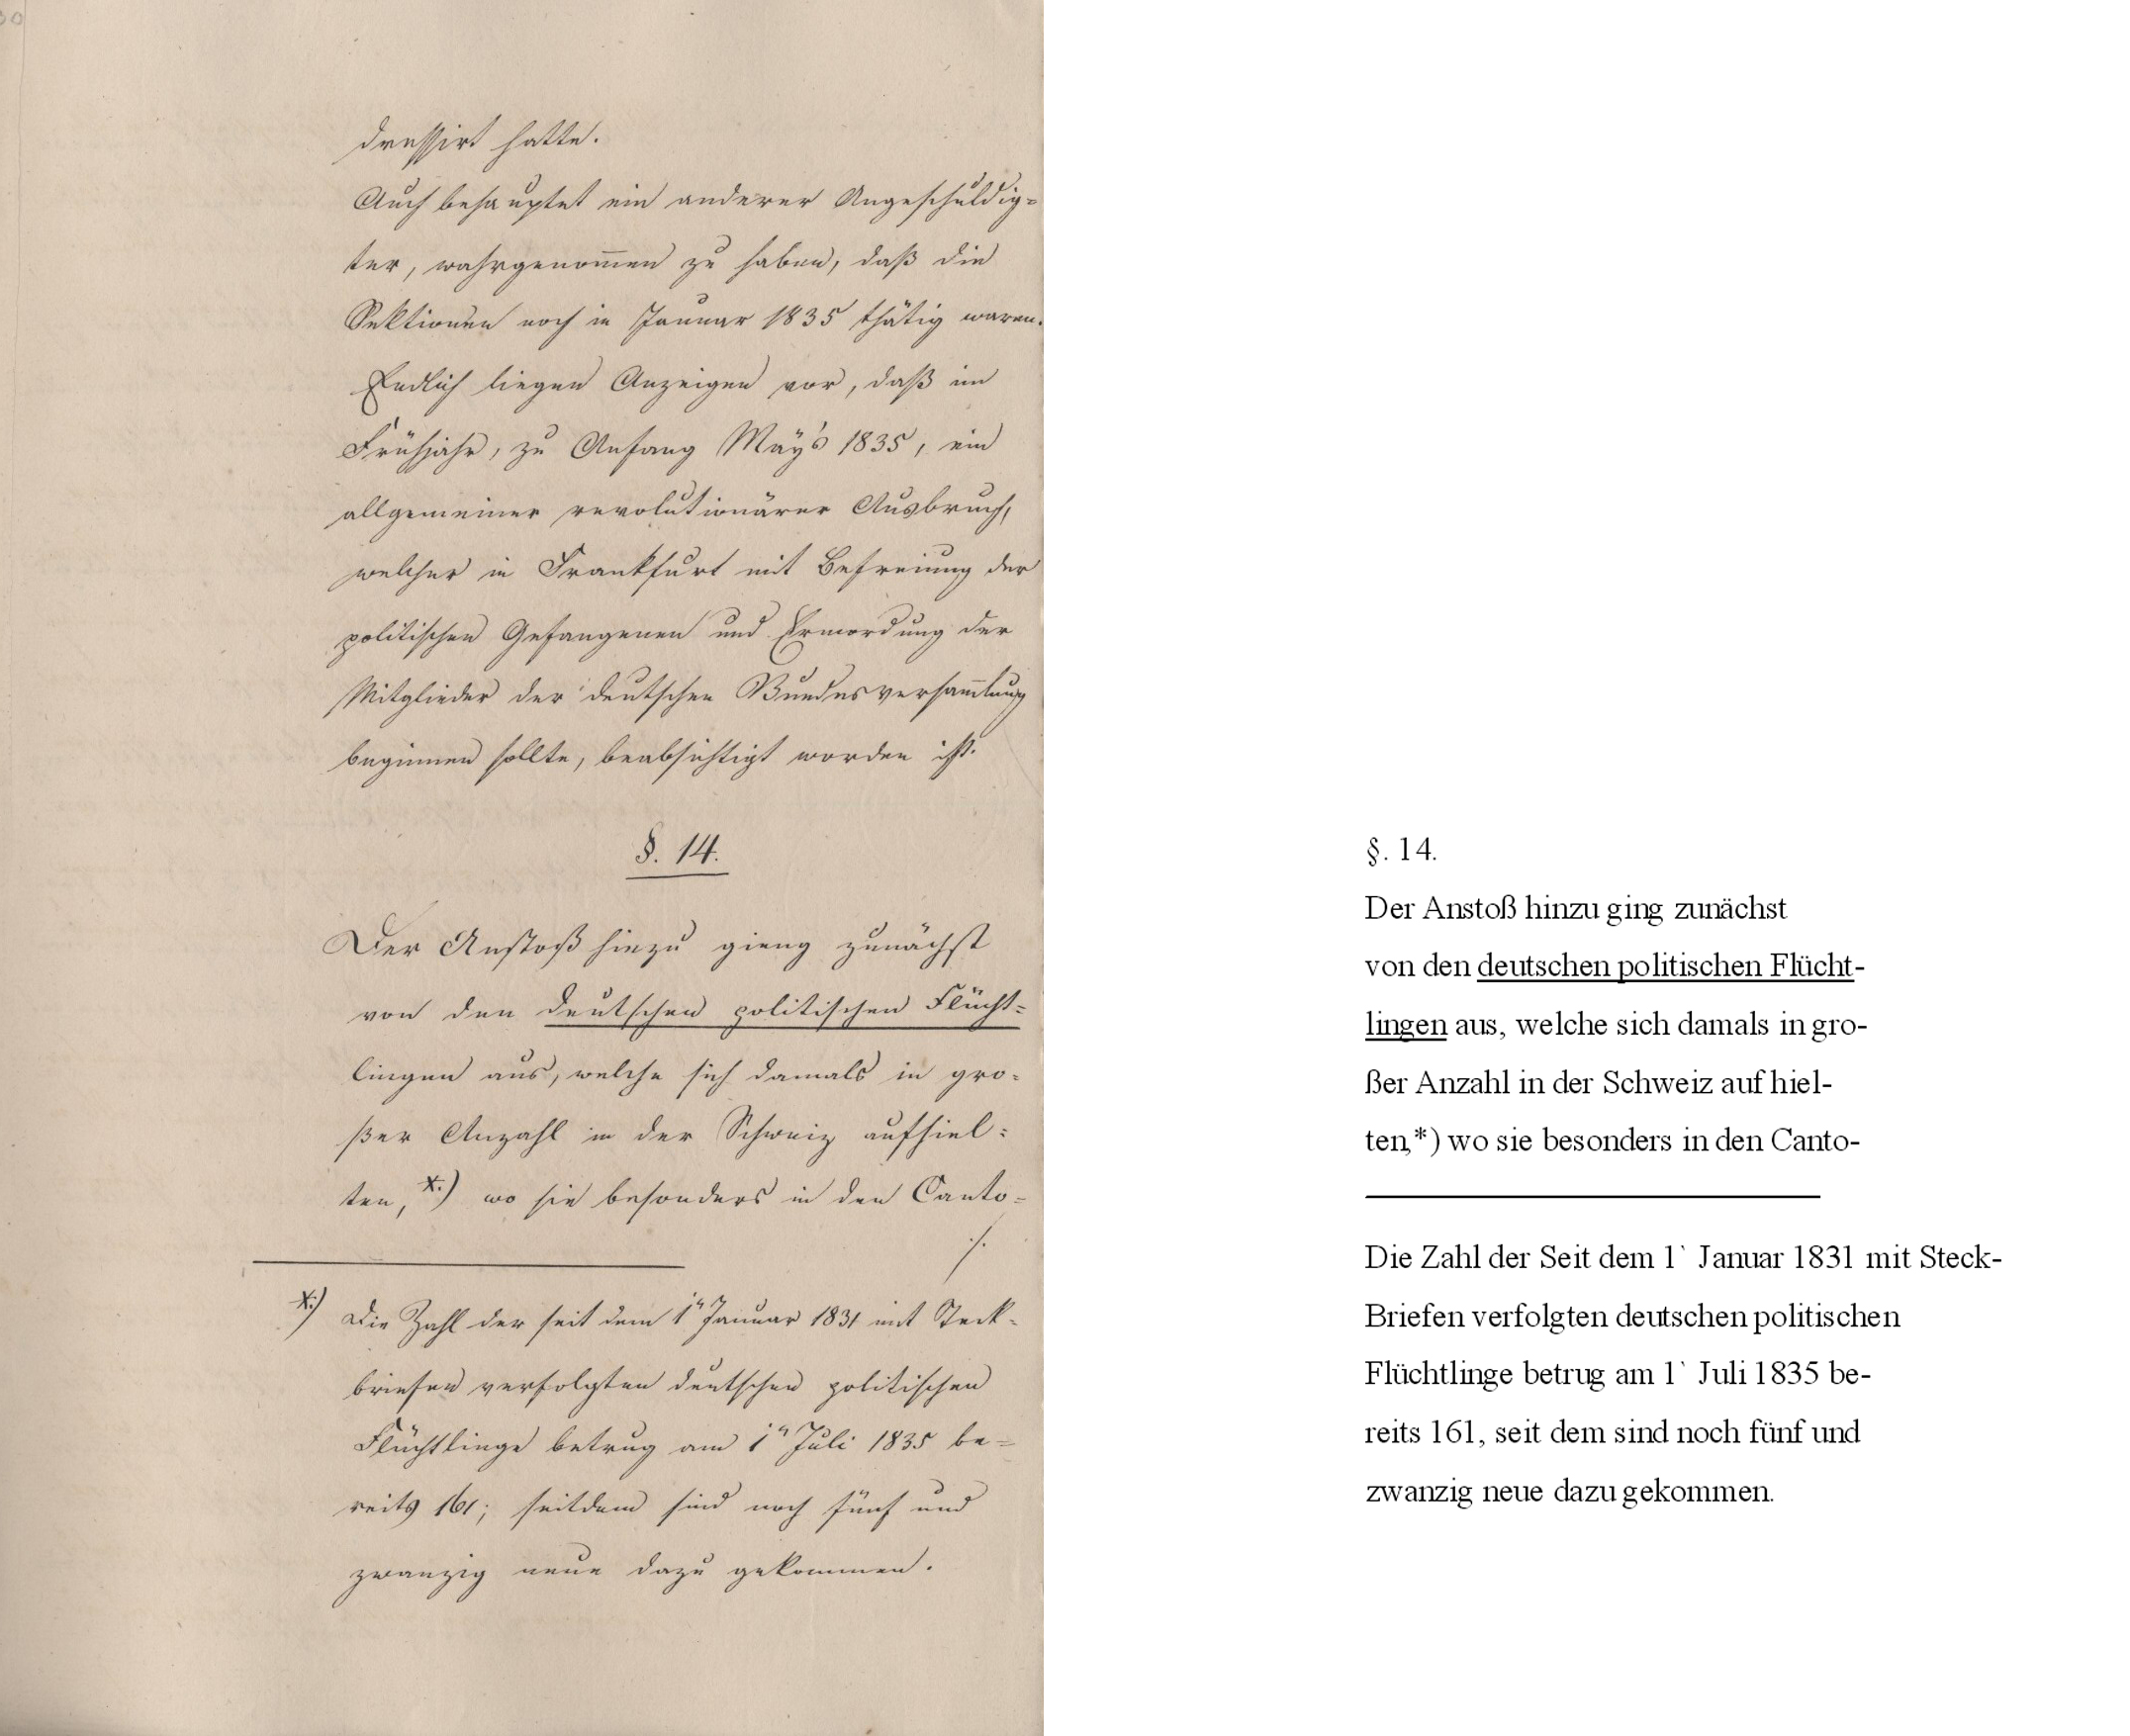 dressirt hatte.
Auch behauptet ein anderer Angeschuldig=
ter, wahrgenom̄en zu haben, daß die
Sektionen noch in Januar 1835 thätig waren.
Endlich liegen Anzeigen vor, daß im
Frühjahr, zu Anfang May's 1835, ein
allgemeiner revolutionärer Ausbruch,
welcher in Frankfurt mit Befreiung der
politischen Gefangenen und Ermordung der
Mitglieder der deutschen Bundesversam̄lung
beginnen sollte, beabsichtigt worden ist.
§. 14.
Der Anstoß hiezu gieng zunächst
von den deutschen politischen Flücht=
lingen aus, welche sich damals in gro=
ßer Anzahl in der Schweiz aufhiel=
ten, *.) wo sie besonders in den Canto=
./.
*.) Die Zahl der seit dem 1n Januar 1831 mit Steck=
briefen verfolgten deutschen politischen
Flüchtlinge betrug am 1n Juli 1835 be=
reits 161; seitdem sind noch fünf und
zwanzig neue dazu gekommen.
§. 14.
Der Anstoß hinzu ging zunächst
von den deutschen politischen Flücht-
lingen aus, welche sich damals in gro-
ßer Anzahl in der Schweiz auf hiel-
ten,*) wo sie besonders in den Canto-
Die Zahl der Seit dem 1` Januar 1831 mit Steck-
Briefen verfolgten deutschen politischen
Flüchtlinge betrug am 1` Juli 1835 be-
reits 161, seit dem sind noch fünf und
zwanzig neue dazu gekommen.